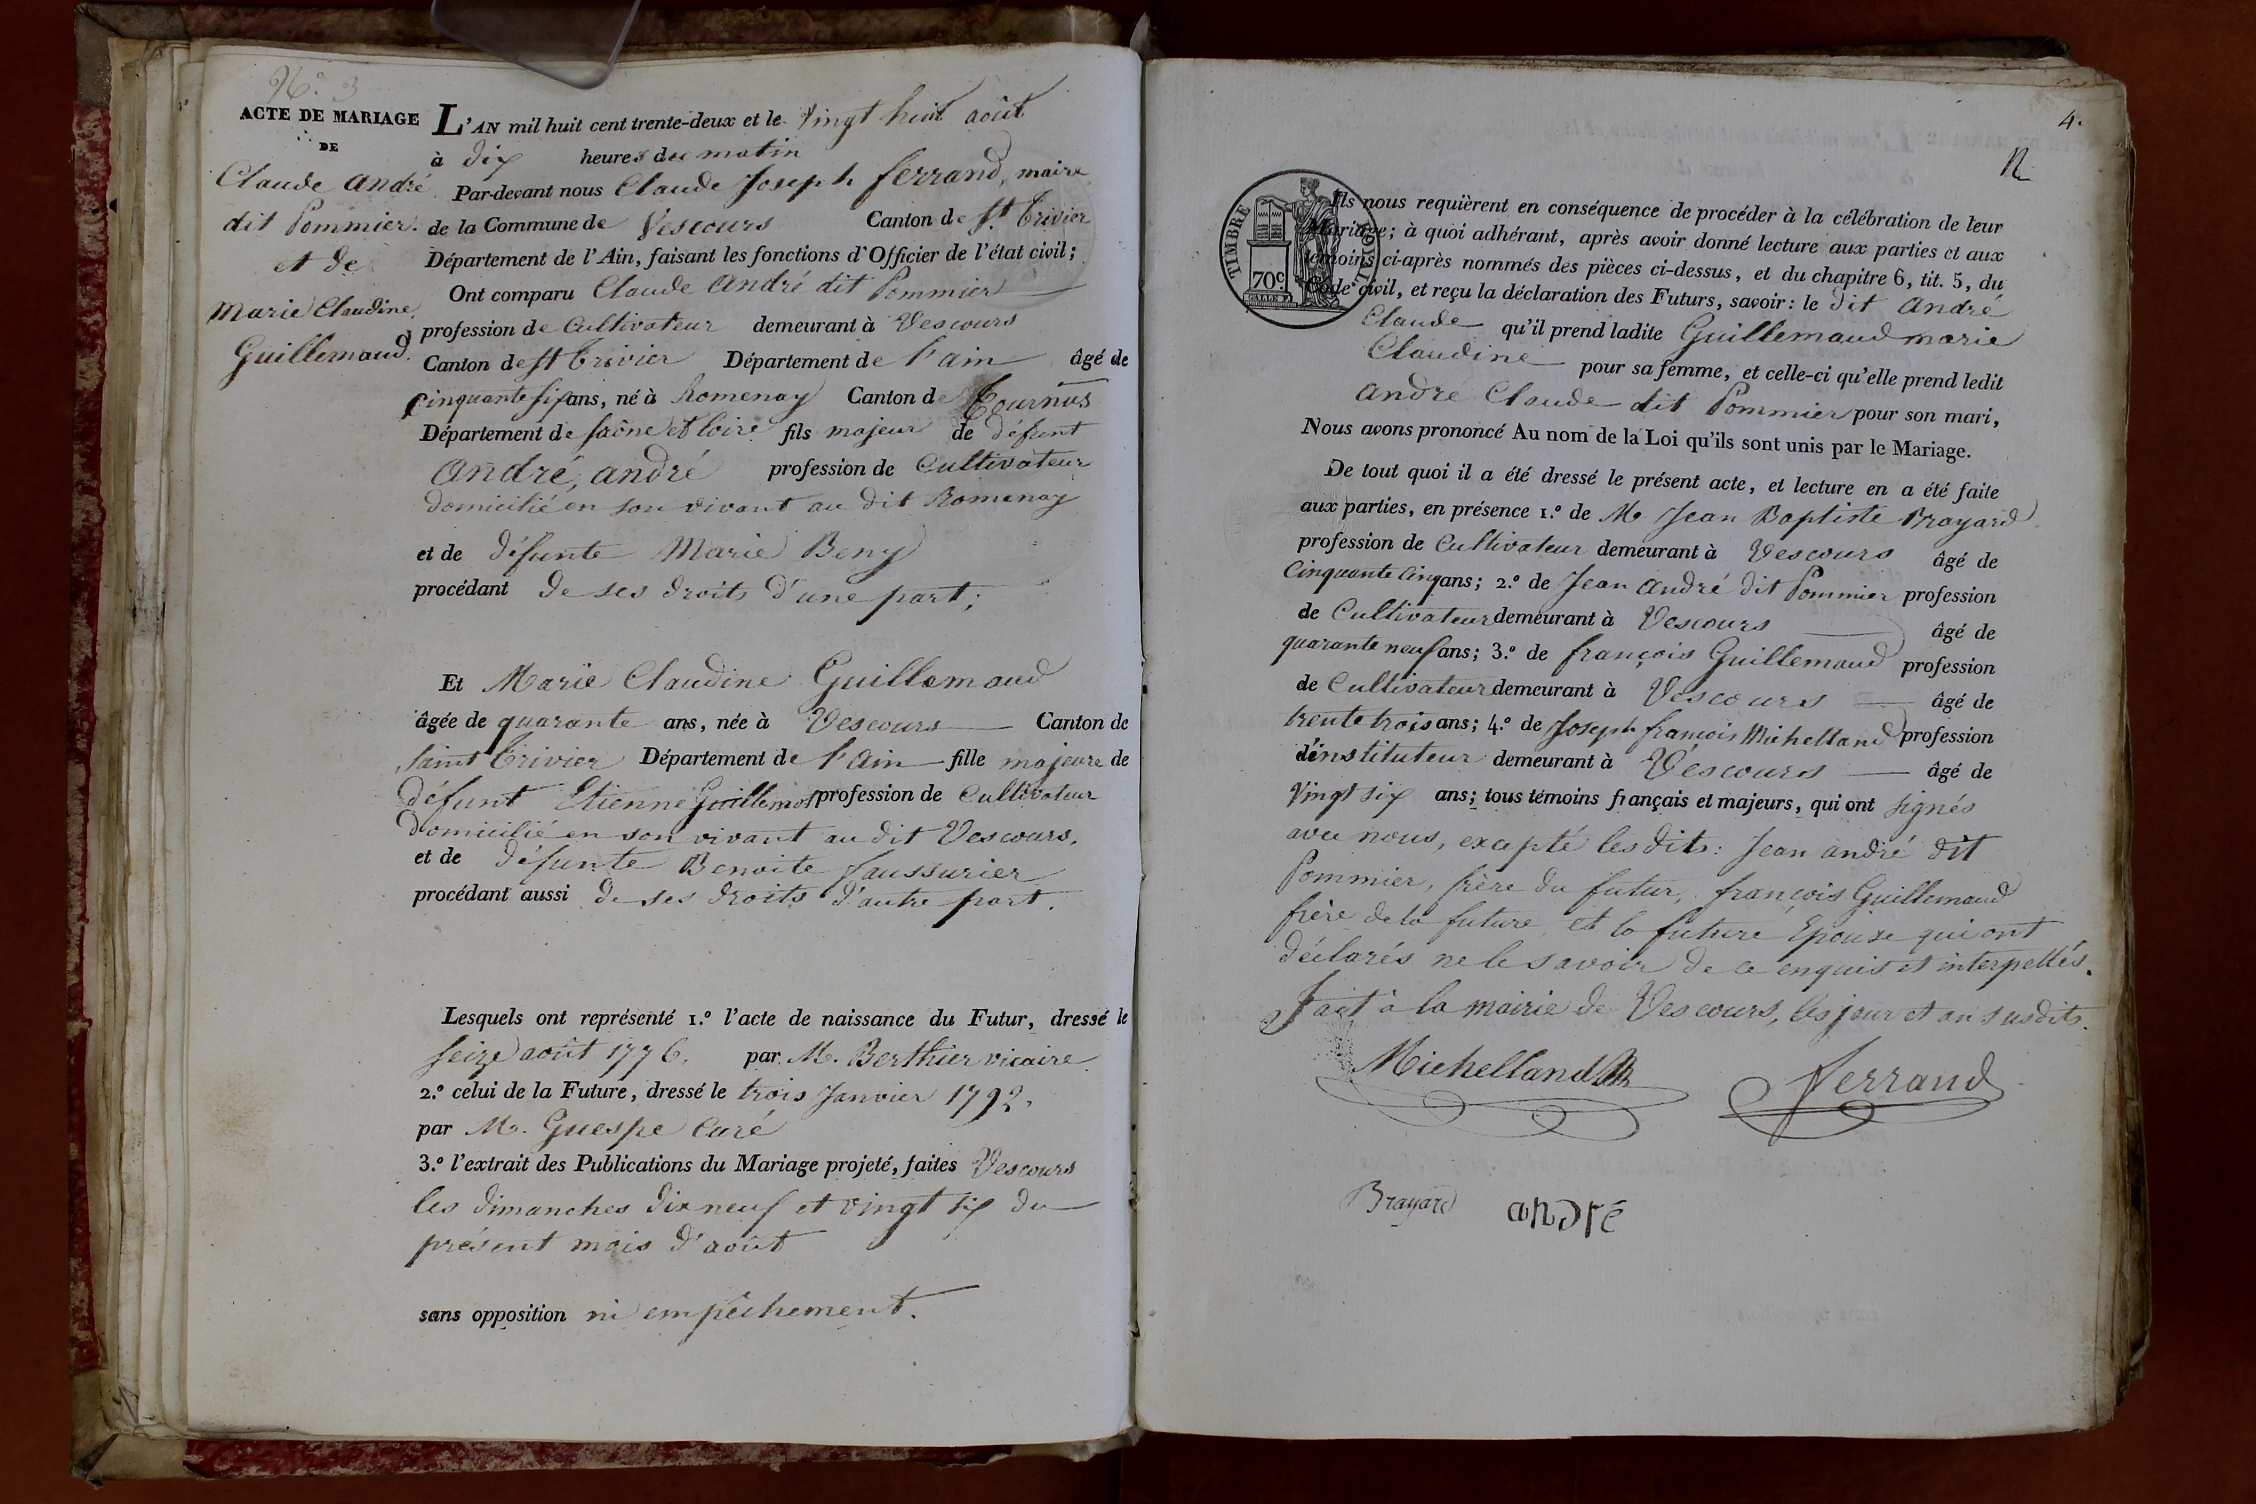 N.° 3
ACTE DE MARIAGE
DE
Claude André
dit Pommier.
et de
Marie Claudine
Guillemaud.
L'AN mil huit cent trente-deux et le vingt huit août
à dix heures du matin
Par-devant nous Claude Joseph ferrand, maire
de la Commune de Vescours Canton de St. Trivier
Département de l'Ain, faisant les fonctions d'Officier de l'état civil;
Ont comparu Claude André dit Pommier
profession de Cultivateur demeurant à Vescours
Canton de St Trivier Département de l'ain âgé de
cinquante six ans, né à Romenay Canton de Tournus
Département de saône et loire fils majeur de défunt
André, andré profession de Cultivateur
domicilié en son vivant au dit Romenay
et de défunte Marie Beny
procédant de ses droits d'une part;
Et Marie Claudine Guillemaud
âgée de quarante ans, née à Vescours Canton de
saint Trivier Département de l'Ain fille majeure de
défunt Etienne Guillemot profession de Cultivateur
domicilié en son vivant au dit Vescours.
et de défunte Benoite faussurier
procédant aussi de ses droits d'autre part.
Lesquels ont représenté 1.° l'acte de naissance du Futur, dressé le
seize août 1776. par M. Berthier vicaire
2.° celui de la Future, dressé le trois Janvier 1792.
par Mr. Guespe Curé
3.° l'extrait des Publications du Mariage projeté, faites Vescours
les dimanches dix neuf et vingt six du
présent mois d'août
sans opposition ni empêchement.
4.
TIMBRE ROYAL
70c
Ils nous requièrent en conséquence de procéder à la célébration de leur
Mariage; à quoi adhérant, après avoir donné lecture aux parties et aux
témoins ci-après nommés des pièces ci-dessus, et du chapitre 6, tit. 5, du
Code civil, et reçu la déclaration des Futurs, savoir: le dit André
Claude qu'il prend ladite Guillemaud marie
Claudine pour sa femme, et celle-ci qu'elle prend ledit
André Claude dit Pommier pour son mari,
Nous avons prononcé Au nom de la Loi qu'ils sont unis par le Mariage.
De tout quoi il a été dressé le présent acte, et lecture en a été faite
aux parties, en présence 1.° de Mr Jean Baptiste Brayard
profession de Cultivateur demeurant à Vescours âgé de
Cinquante Cinq ans; 2.° de Jean André dit Pommier profession
de Cultivateur demeurant à Vescours âgé de
quarante neuf ans; 3.° de françois Guillemaud profession
de Cultivateur demeurant à Vescours âgé de
trente trois ans; 4.° de Joseph françois Michelland profession
d'instituteur demeurant à Vescours âgé de
Vingt six ans; tous témoins français et majeurs, qui ont signés
avec nous, excepté les dits: Jean andré dit
Pommier, frère du futur, françois Guillemaud
frère de la future, et la future Epouse qui ont
déclarés ne le savoir de ce enquis et interpellés.
Fait à la mairie de Vescours, les jour et an susdits.
Michelland
Ferrand
Brayard
andré